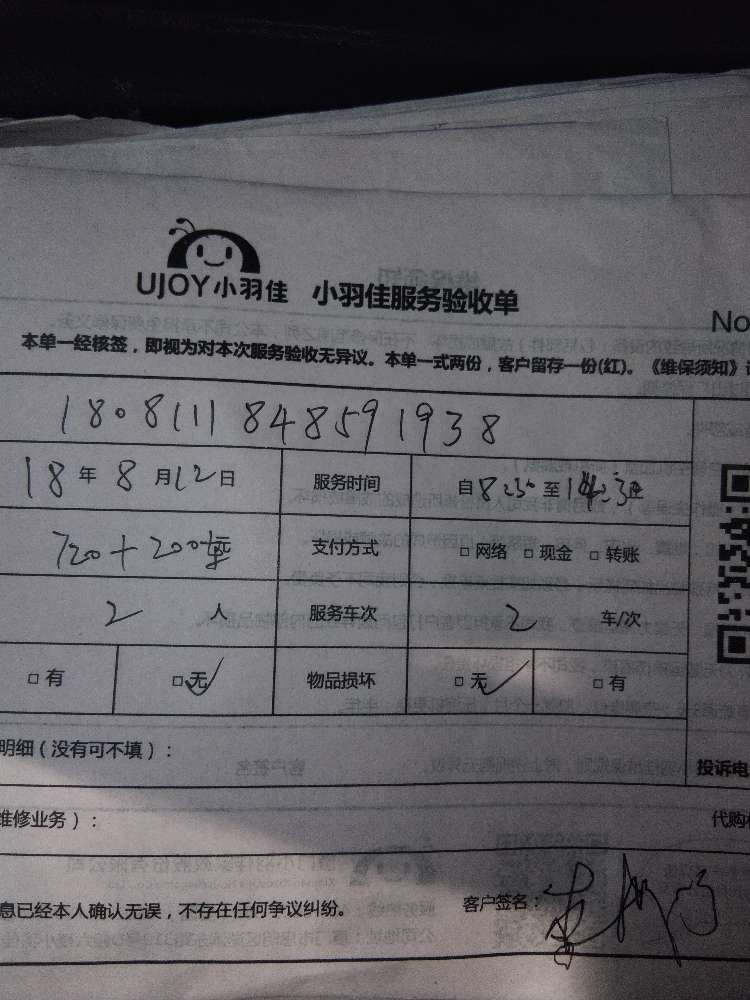 UJOY小羽佳 小羽佳服务验收单
No
本单一经核签，即视为对本次服务验收无异议。本单一式两份，客户留存一份(红)。《维保须知》
1808111848591938
18年8月12日 服务时间 自8:30至
720+200 支付方式 □网络 □现金 □转账
2人 服务车次 2 车/次
□有 □无 物品损坏 □无 □有
明细（没有可不填）：
投诉电
维修业务）：
代购
息已经本人确认无误，不存在任何争议纠纷。 客户签名：